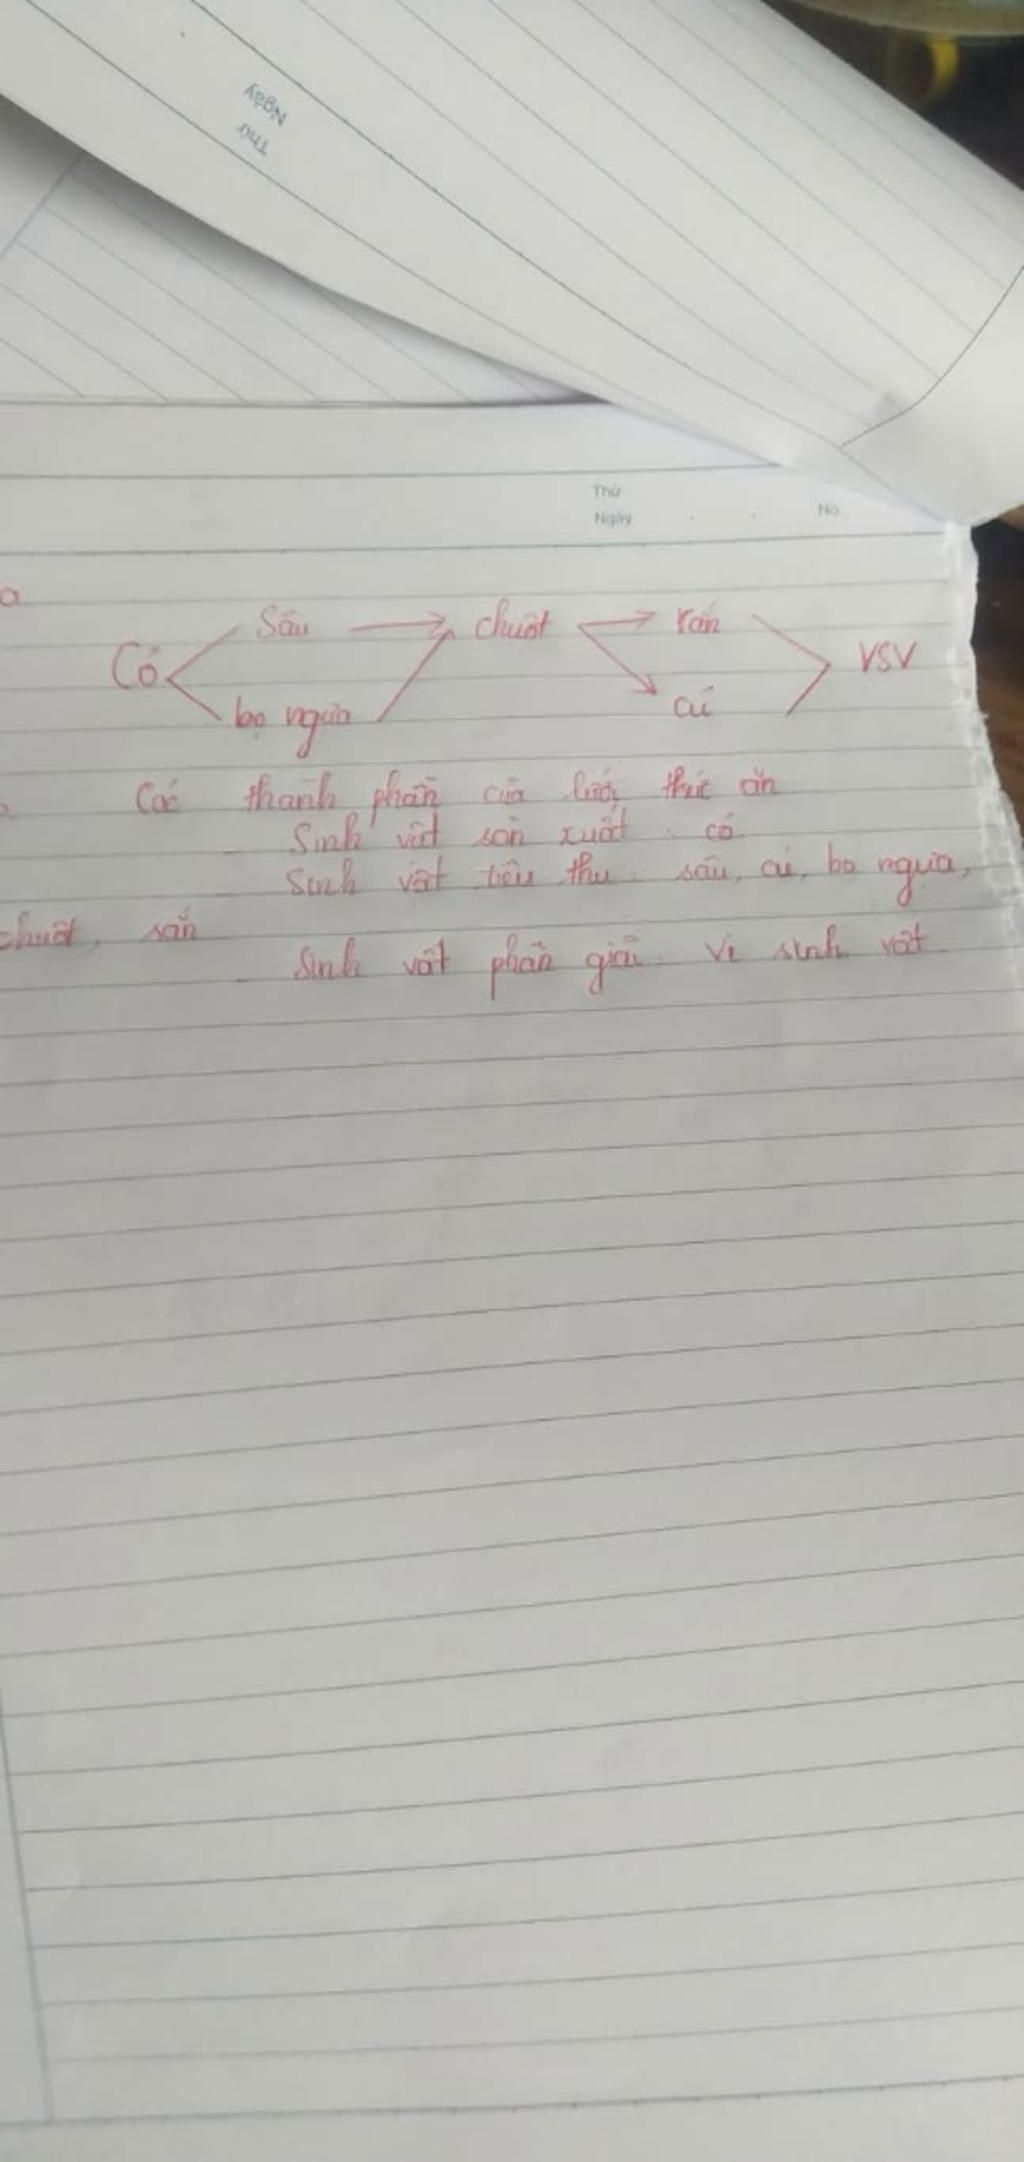 Ngày
Thứ
Thứ
Ngày No.
a
Sâu chuột rắn
Cỏ VSV
bọ ngựa cú
Các thành phần của lưới thức ăn
Sinh vật sản xuất: cỏ
Sinh vật tiêu thụ: sâu, cú, bọ ngựa,
chuột, sắn
Sinh vật phân giải: vi sinh vật